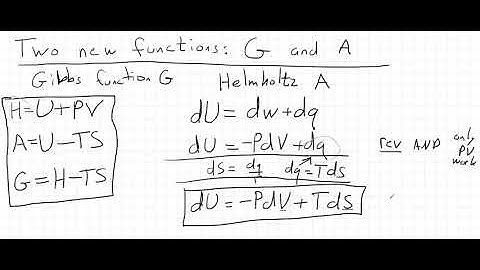 Two new functions: G and A
Gibbs function G
Helmholtz A
H=U+PV
A=U-TS
G=H-TS
dU=dw+dq
dU=-PdV+dq
rev AND only PV work
dS=dq/T dq=TdS
dU=-PdV+TdS